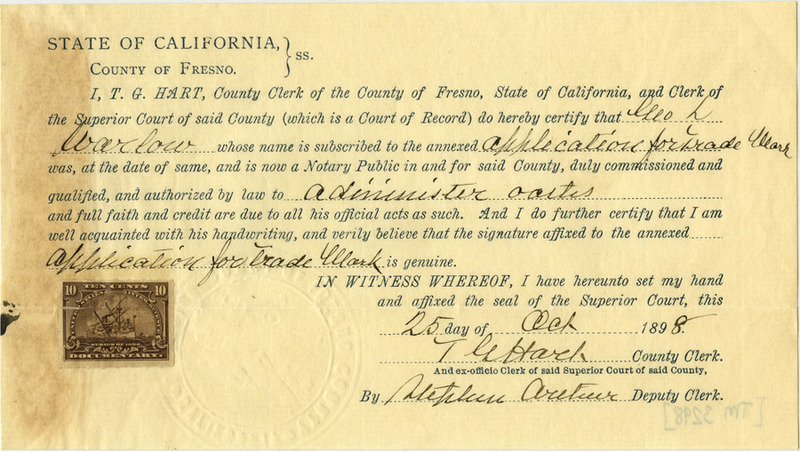 STATE OF CALIFORNIA, } ss.
COUNTY OF FRESNO.
I, T. G. HART, County Clerk of the County of Fresno, State of California, and Clerk of
the Superior Court of said County (which is a Court of Record) do hereby certify that Geo L
Warlow whose name is subscribed to the annexed application for trade Mark
was, at the date of same, and is now a Notary Public in and for said County, duly commissioned and
qualified, and authorized by law to administer oaths
and full faith and credit are due to all his official acts as such. And I do further certify that I am
well acquainted with his handwriting, and verily believe that the signature affixed to the annexed
application for trade Mark is genuine.
IN WITNESS WHEREOF, I have hereunto set my hand
and affixed the seal of the Superior Court, this
25 day of Oct 1898.
T G Hart County Clerk.
And ex-officio Clerk of said Superior Court of said County,
By Stephen Deputy Clerk.
10 TEN CENTS 10
SERIES OF 1898
DOCUMENTARY.
[TM 3298]